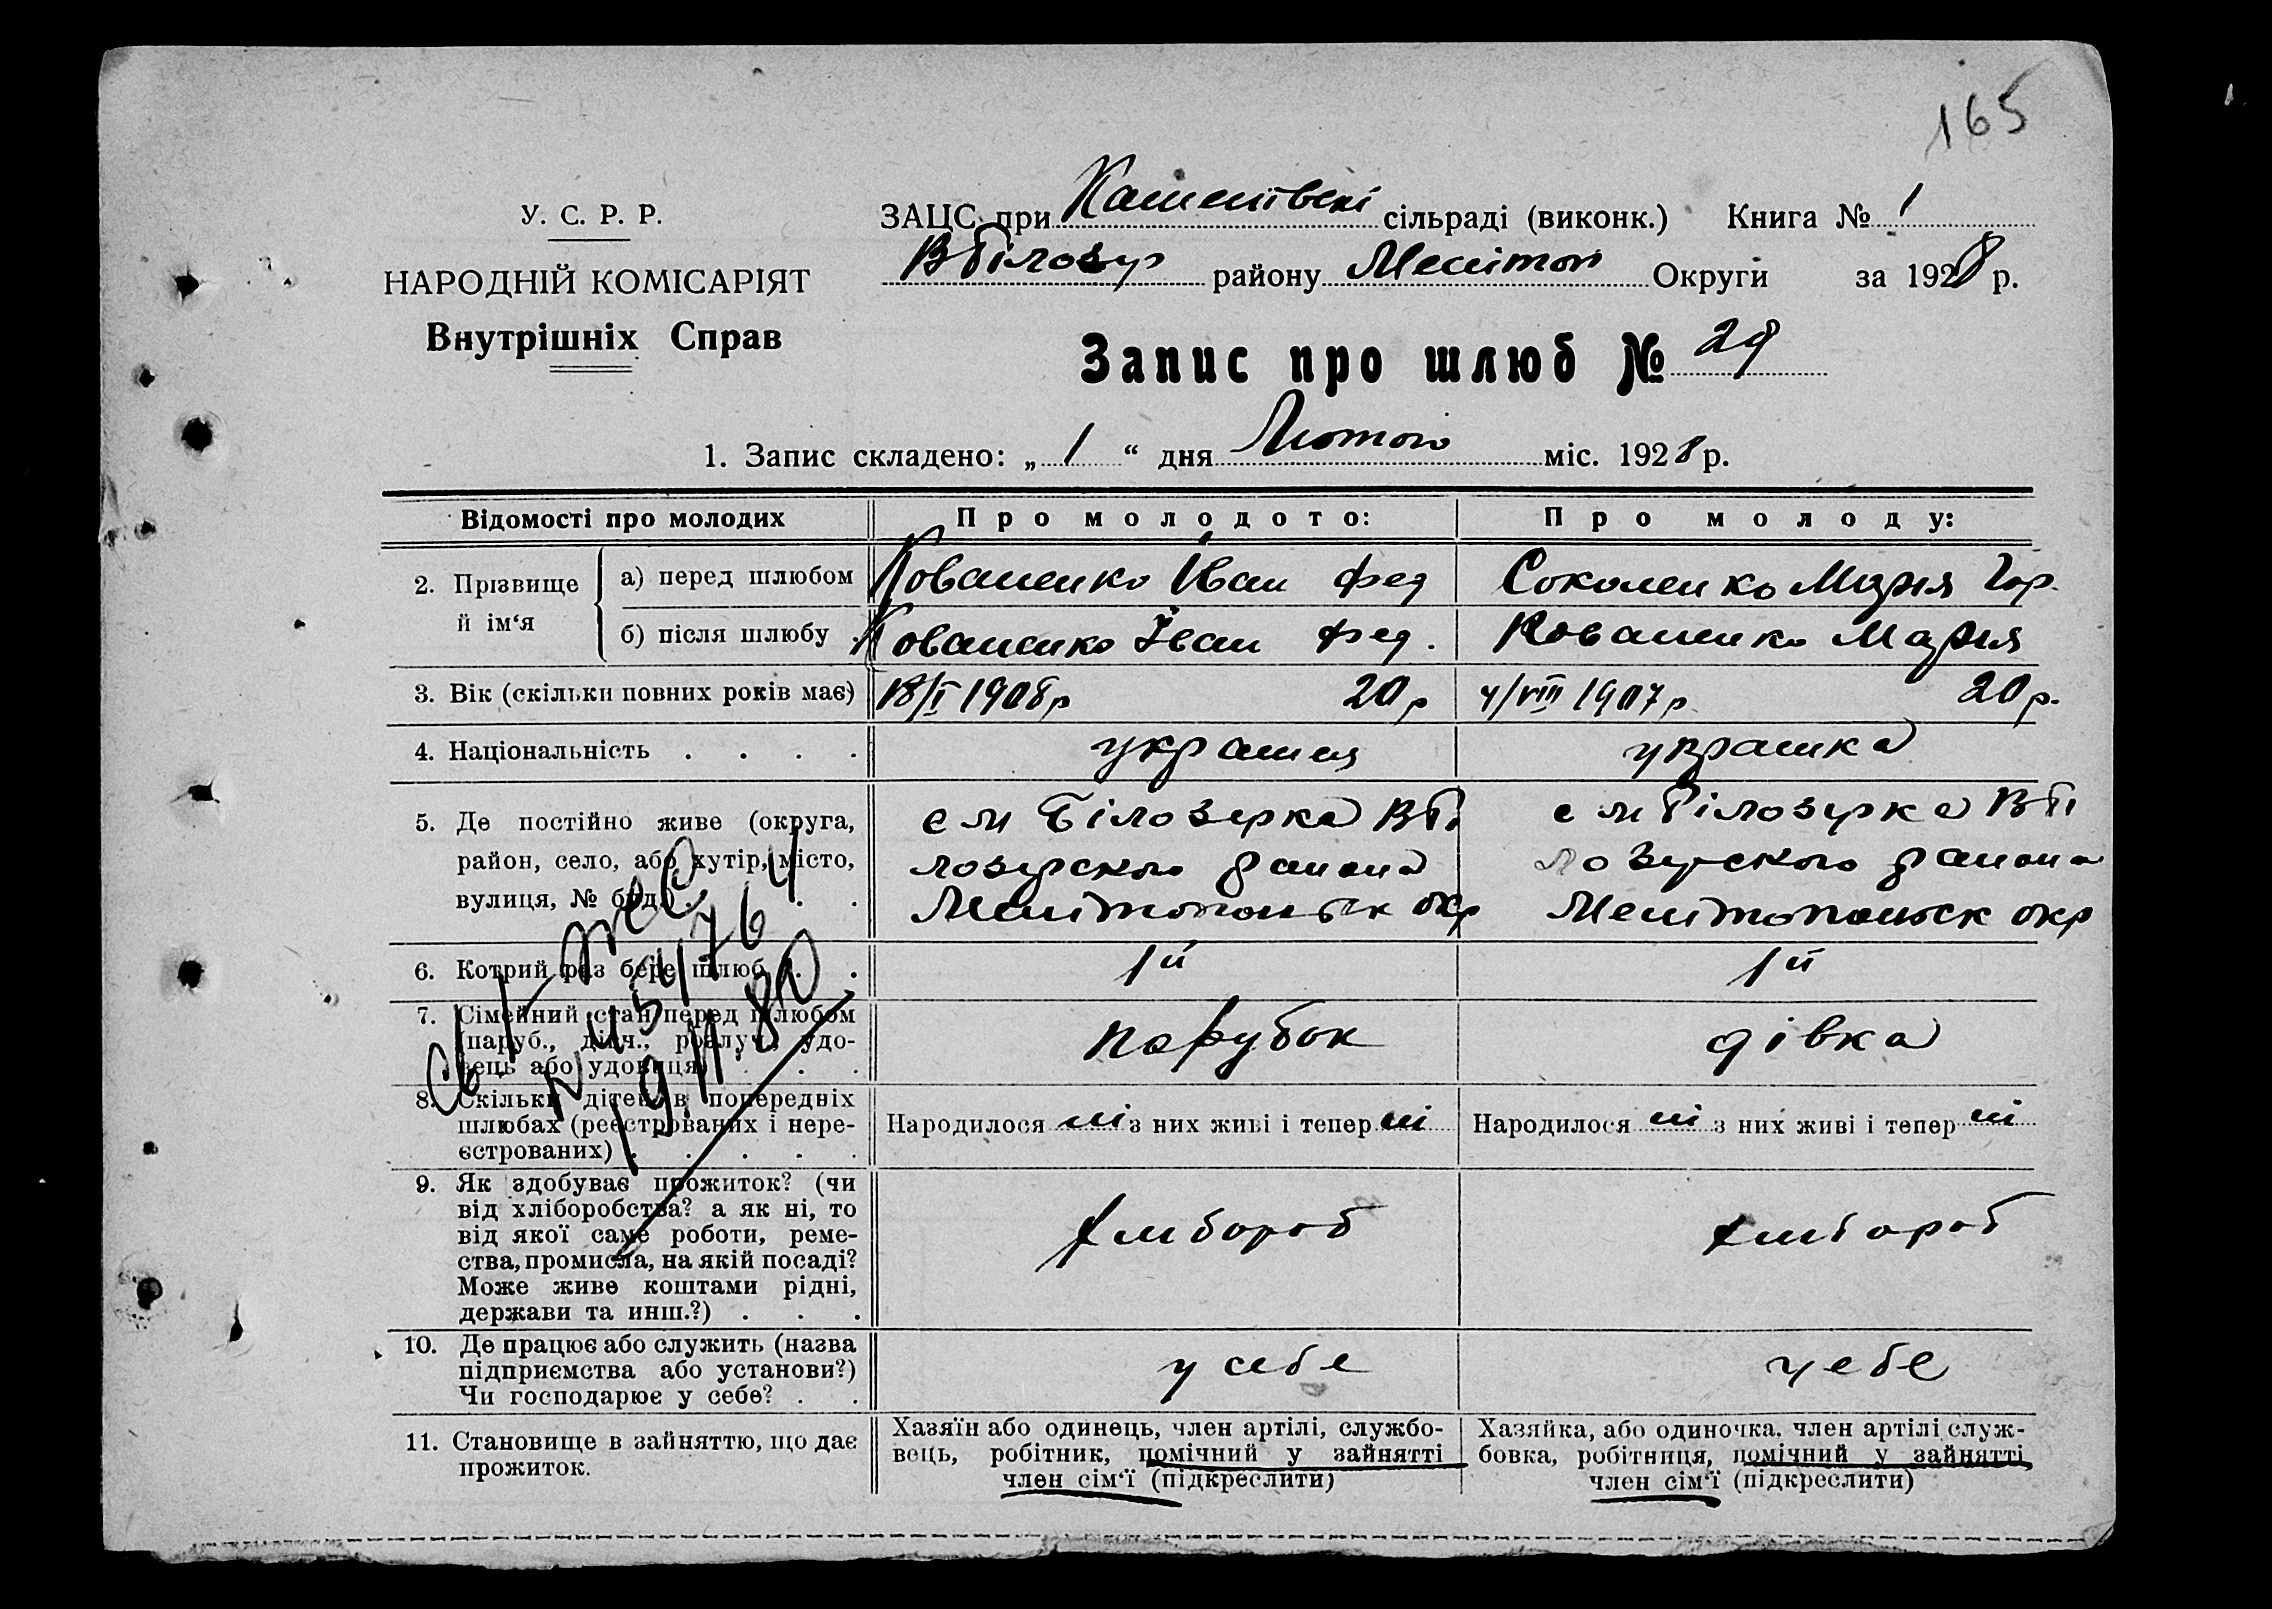 165
У. С. Р. Р.
НАРОДНІЙ КОМІСАРІЯТ
Внутрішніх Справ
ЗАЦС при сільраді (виконк.) Книга № 1
ВБілозер району Мелітоп Округи за 1928 р.
Запис про шлюб №
1. Запис складено: „ 1 “ дня Лютого міс. 1928 р.
Відомості про молодих
Про молодого:
Про молоду:
2. Прізвище й ім‘я
а) перед шлюбом
Коваленко Іван Фед
Соколенко Марія Гор.
б) після шлюбу .
Коваленко Іван Фед.
Коваленко Марія
3. Вік (скільки повних років має)
18/I 1908р 20р
4/VIII 1907р 20р.
4. Національність . . . .
украинц
украинка
5. Де постійно живе (округа,
район, село, або хутір, місто,
вулиця, № буд.) . . . .
с м Білозерка ВБі
лозерского району
Мелітопольск окр
с м Білозерка ВБі
лозерского району
Мелітопольск окр
6. Котрий раз бере шлюб . .
1й
1й
7. Сімейний стан перед шлюбом
(паруб., дівч., розлуч., удо-
вець або удовиця) . . .
парубок
дівка
8. Скільки дітей в попередніх
шлюбах (реєстрованих і нере-
єстрованих) . . . . .
Народилося ні з них живі і тепер ні
Народилося ні з них живі і тепер ні
9. Як здобуває прожиток? (чи
від хліборобства? а як ні, то
від якої саме роботи, реме-
ства, промисла, на якій посаді?
Може живе коштами рідні,
держави та инш.?) . . .
хлибороб
хлибороб
10. Де працює або служить (назва
підприємства або установи?)
Чи господарює у себе? . .
у себе
у себе
11. Становище в зайняттю, що дає
прожиток.
Хазяїн або одинець, член артілі, службо-
вець, робітник, помічний у зайнятті
член сім‘ї (підкреслити)
Хазяйка, або одиночка, член артілі, служ-
бовка, робітниця, помічний у зайнятті
член сім‘ї (підкреслити)